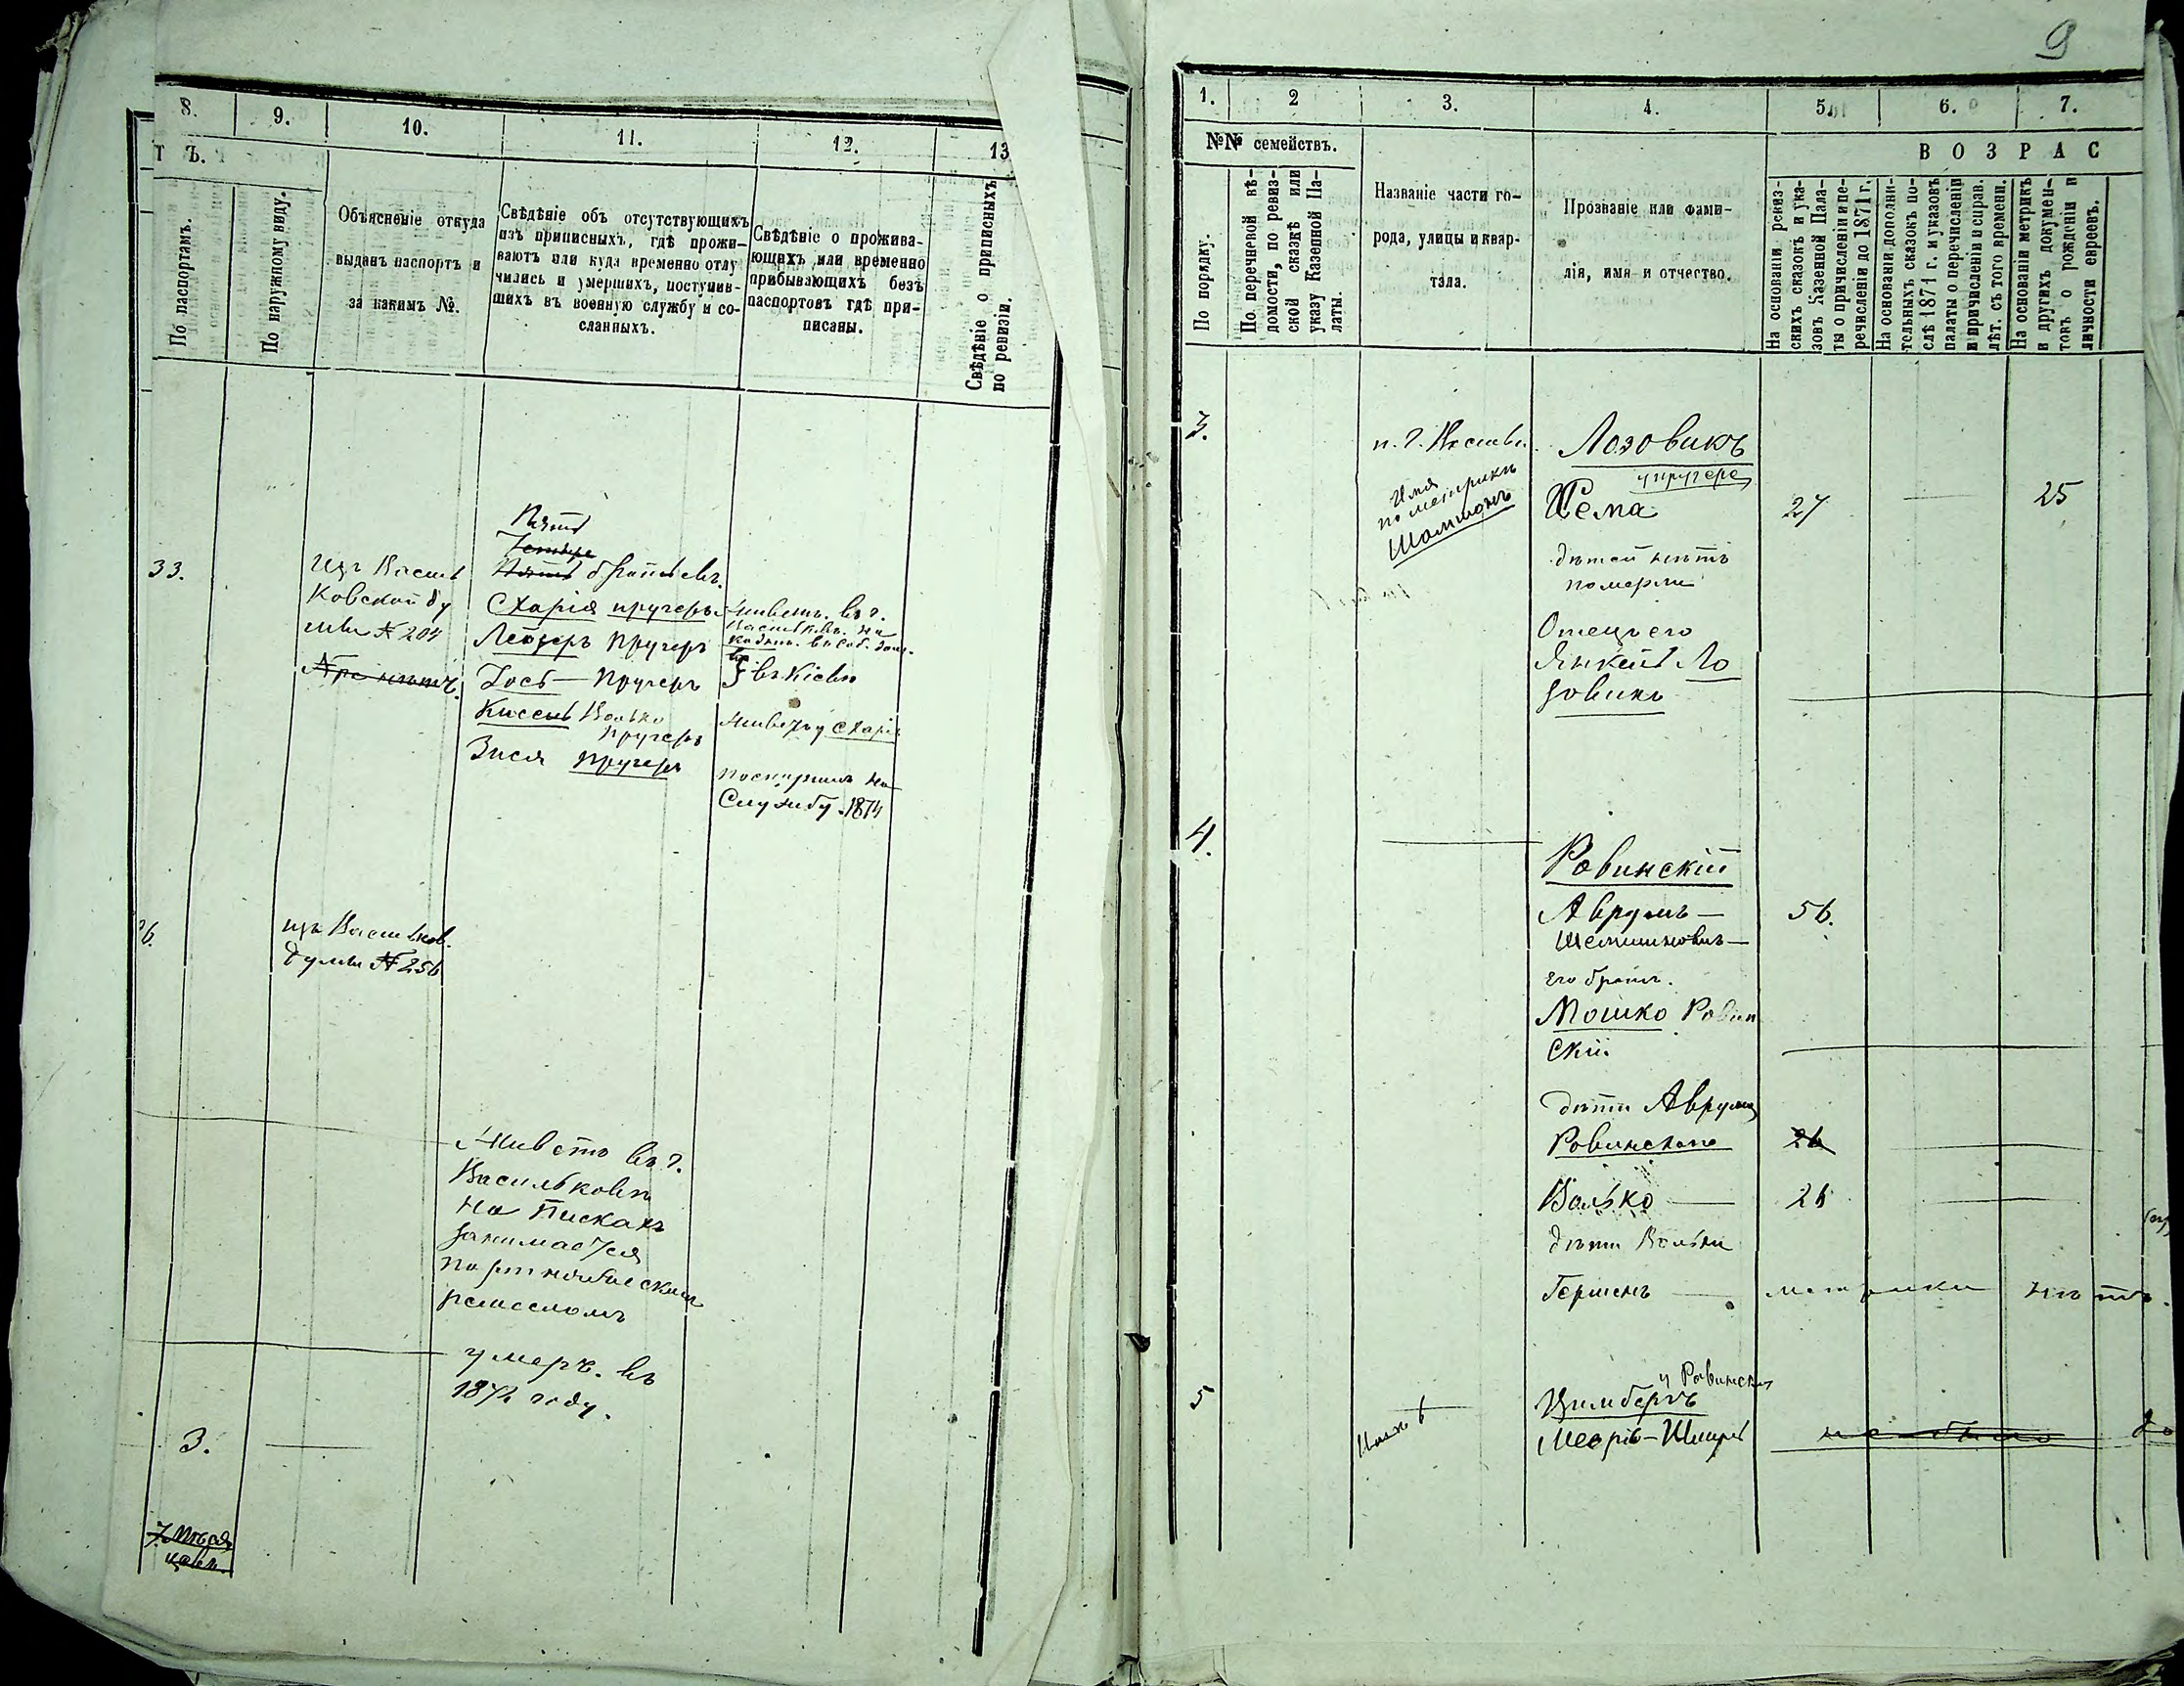 8.
9.
10.
11.
12.
13
Т Ъ.
По паспортамъ.
По наружному виду.
Объясненіе откуда
выданъ паспортъ и
за какимъ №.
Свѣдѣніе объ отсутствующихъ
изъ приписныхъ, гдѣ прожи-
ваютъ или куда временно отлу
чились и умершихъ, поступив-
шихъ въ военную службу и со-
сланныхъ.
Свѣдѣніе о прожива-
ющихъ или временно
прибывающихъ безъ
паспортовъ гдѣ при-
писаны.
Свѣдѣніе о приписныхъ
по ревизіи.
33.
изъ Василь
ковской ду
мы № 204
Пять
братьевъ.
Схарія пругеръ
Лейзеръ пругеръ
Іось — пругеръ
Кисель Волько
пругеръ
Зися пругеръ
живетъ въ г.
въ Кіевѣ
живетъ у Схарія
поступилъ на
Службу 1874
изъ Васильков.
думы № 256
Живетъ въ г.
Васильковѣ
на Пискахъ
занимается
портняжескимъ
ремесломъ
умеръ въ
1874 году.
3.
9
1.
2
3.
4.
5.
6.
7.
№№ семействъ.
В О З Р А С
По порядку.
По перечневой вѣ-
домости, по ревиз-
ской сказкѣ или
указу Казенной Па-
латы.
Названіе части го-
рода, улицы и квар-
тала.
Прозваніе или фами-
лія, имя и отчество.
На основаніи ревиз-
скихъ сказокъ и ука-
зовъ Казенной Пала-
ты о причисленіи и пе-
речисленіи до 1871 г.
На основаніи дополни-
тельныхъ сказокъ по-
слѣ 1871 г. и указовъ
палаты о перечисленіи
и причисленіи и справ.
лѣт. съ того времени.
На основаніи метрикъ
и другихъ докумен-
товъ о рожденіи и
личности евреевъ.
3.
Имя
по метрикѣ
Шоломонъ
Лозовикъ
у пругера
Шема
27
25
дѣтей нѣтъ
померли
Отецъ его
Янкель Ло
зовикъ
4.
Ровинскій
Аврумъ —
56.
его братъ.
Мошко Ровин
скій
дѣти Аврума
Ровинскаго
26
Волько
26
дѣти Волька
Гершенъ
метрики нѣтъ.
5
у Ровинскаго
Цимбергъ